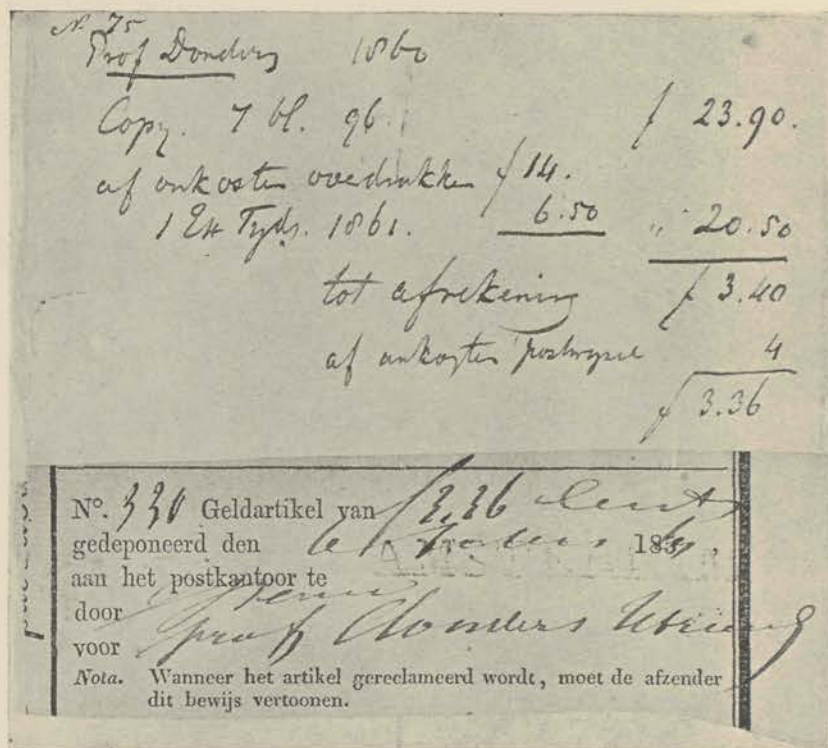 N. 75
Prof Donders 1860
Copy. 7 bl. 96. f 23.90.
af onkosten overdrukken f 14.
1 Ex Tyds. 1861. 6.50 " 20.50
tot afrekening f 3.40
af onkosten postwissel 4
f 3.36
N°. 330 Geldartikel van f 3.36 Cent
gedeponeerd den 183
aan het postkantoor te AMSTERDAM
door
voor prof Donders Utrecht
Nota. Wanneer het artikel gereclameerd wordt, moet de afzender
dit bewijs vertoonen.